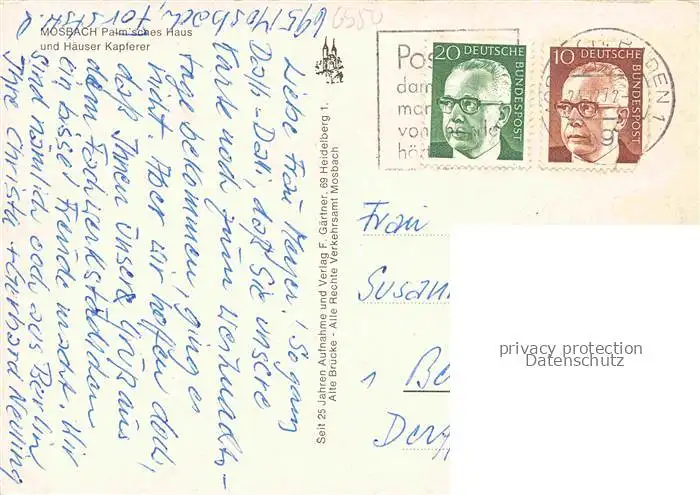 MOSBACH Palm'sches Haus
und Häuser Kapferer
695 Mosbach,
6950
Liebe Frau Meyer! So ganz
Doll-Doll, daß Sie unsere
Karte noch zum Weihnachts-
tage bekommen, ging es
nicht. Aber wir hoffen doch,
daß Ihnen unsere Grüße aus
dem Fachwerkstädtchen
ein bissel Freude macht. Wir
sind nämlich auch aus Berlin.
Ihre Christa + Gerhard
Seit 25 Jahren Aufnahme und Verlag F. Gärtner, 69 Heidelberg 1.
Alte Brücke - Alle Rechte Verkehrsamt Mosbach
Pos
dam
man
von
hö
20 DEUTSCHE BUNDESPOST
10 DEUTSCHE BUNDESPOST
DEN 1
Frau
Susan
1 Be
privacy protection
Datenschutz